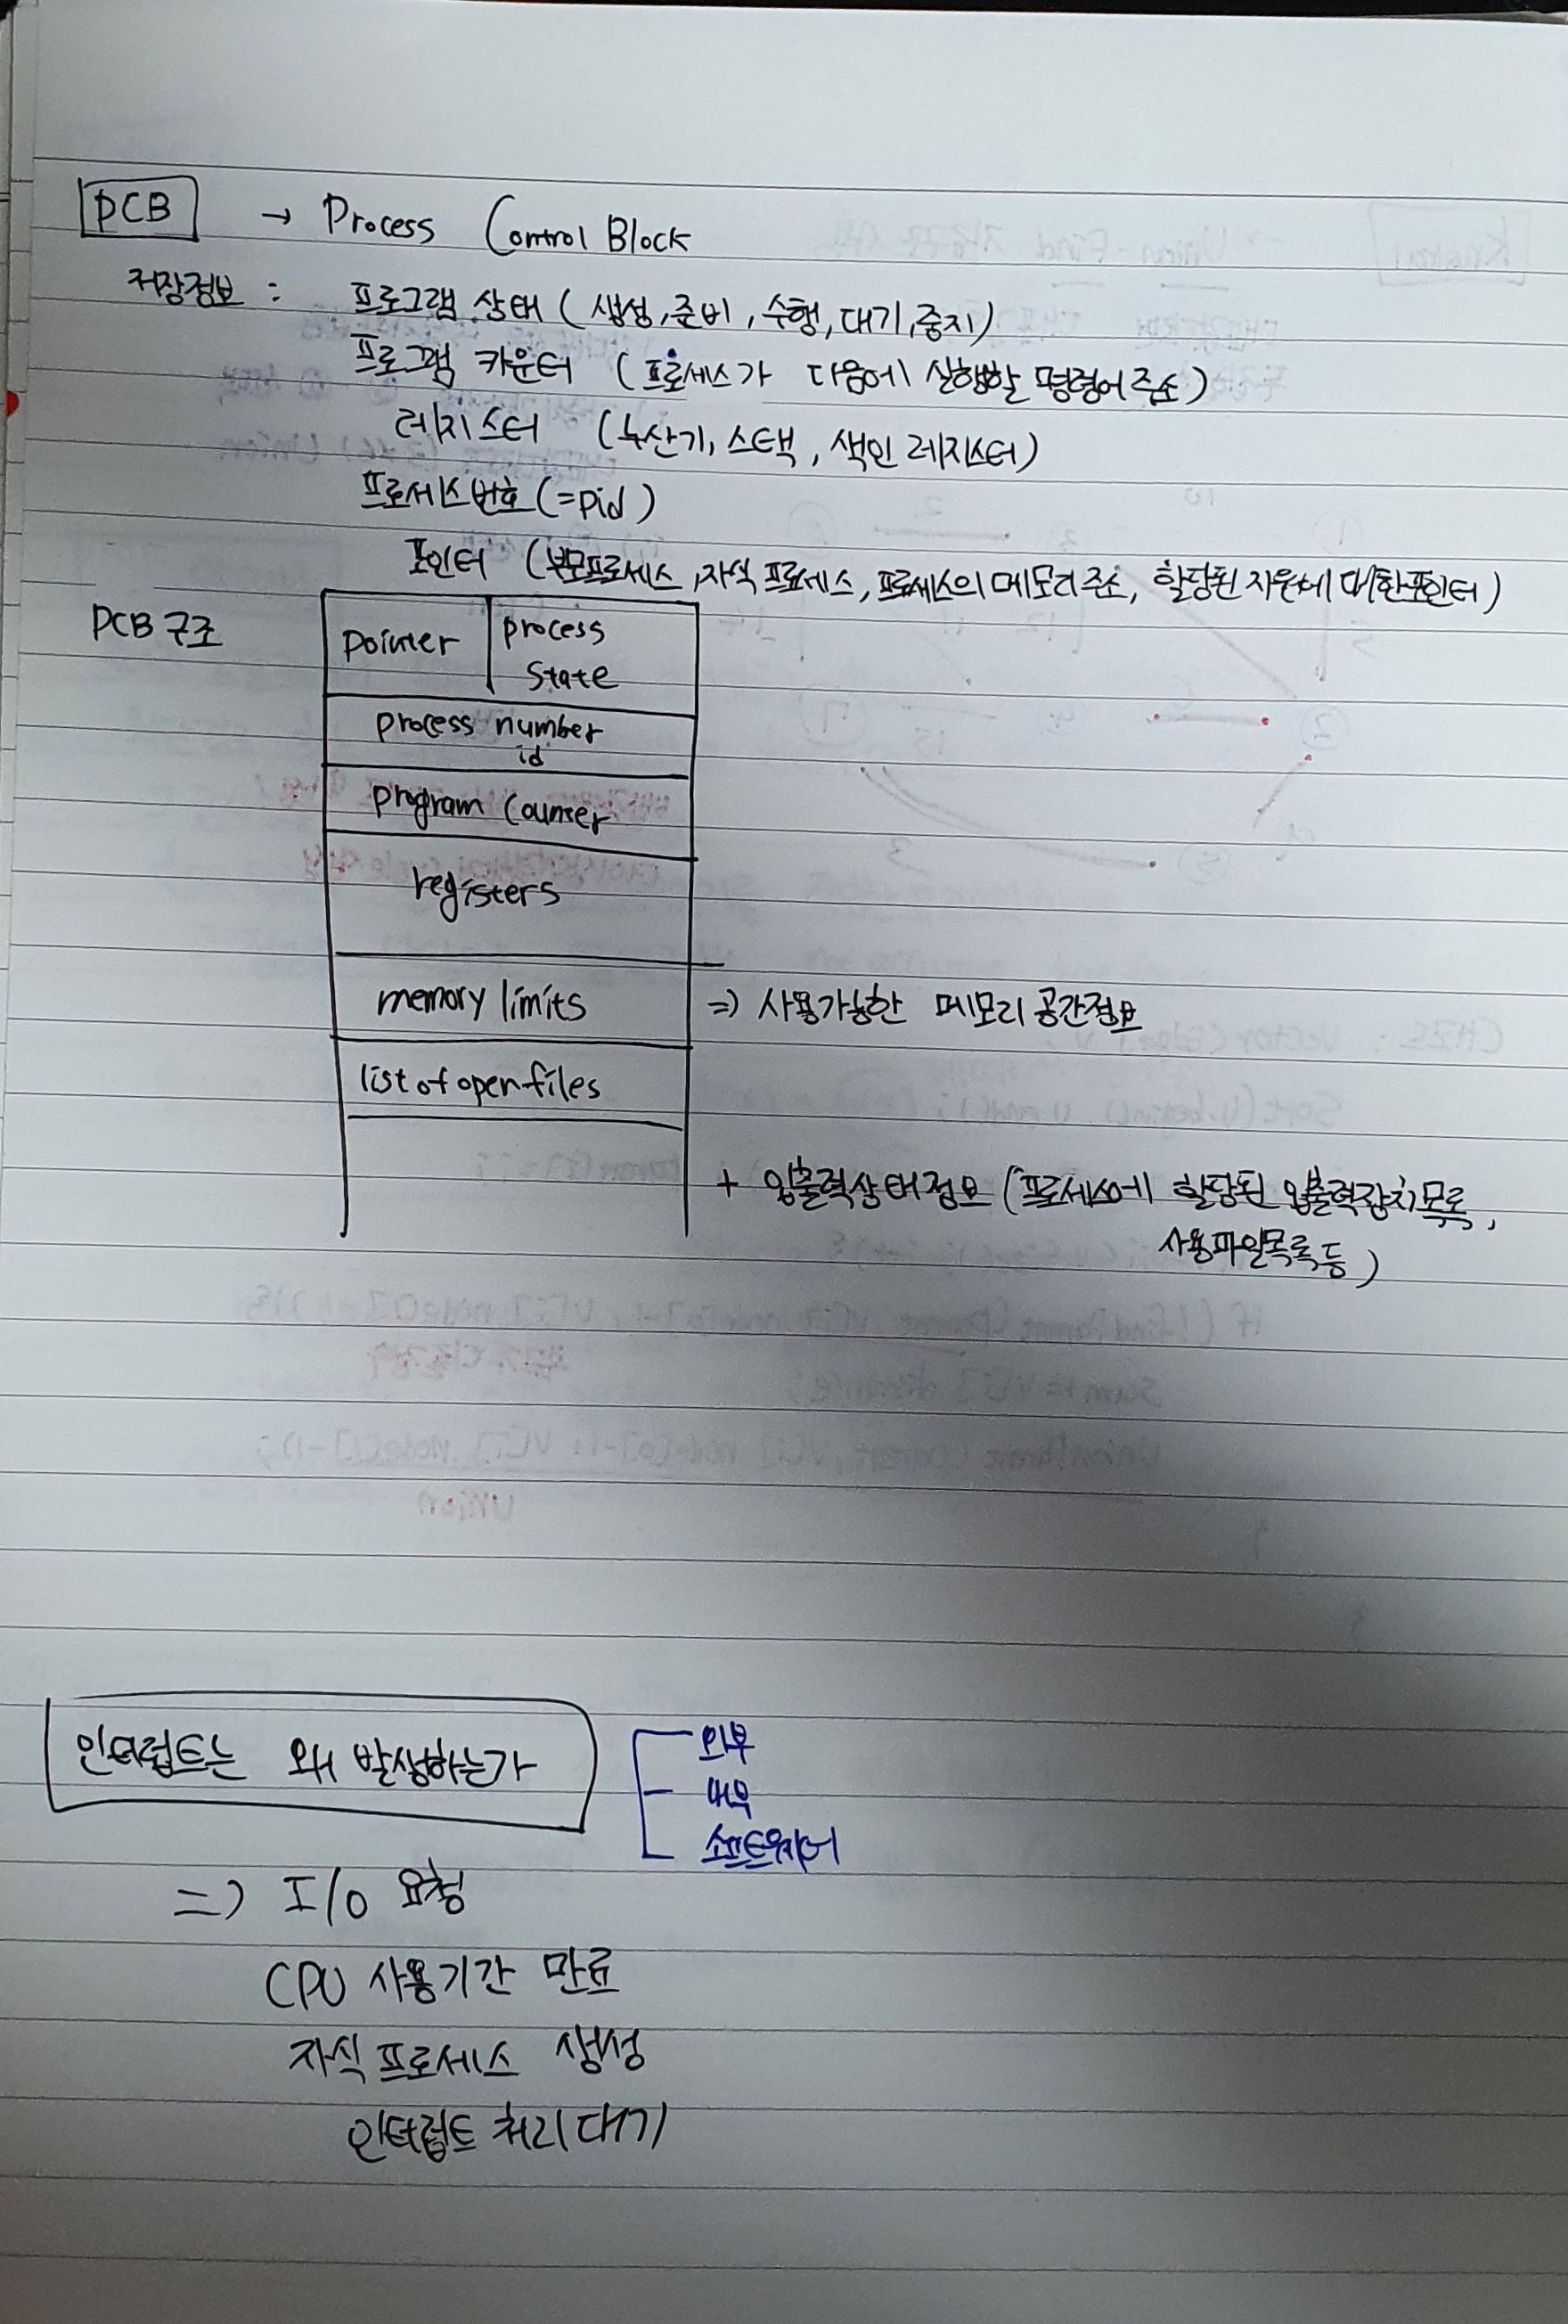 PCB → Process Control Block
저장정보 : 프로그램 상태 ( 생성, 준비, 수행, 대기, 중지)
프로그램 카운터 (프로세스가 다음에 실행할 명령어 주소)
레지스터 (누산기, 스택, 색인 레지스터)
프로세스번호 (=pid)
포인터 (부모프로세스, 자식 프로세스, 프로세스의 메모리 주소, 할당된 자원에 대한 포인터)
PCB 구조
pointer
process
state
process number
id
program counter
registers
memory limits ⇒ 사용가능한 메모리 공간정보
list of open files
+ 입출력상태정보 (프로세스에 할당된 입출력장치 목록,
사용파일목록 등)
인터럽트는 왜 발생하는가
외부
내부
소프트웨어
⇒ I/O 요청
CPU 사용기간 만료
자식 프로세스 생성
인터럽트 처리 대기